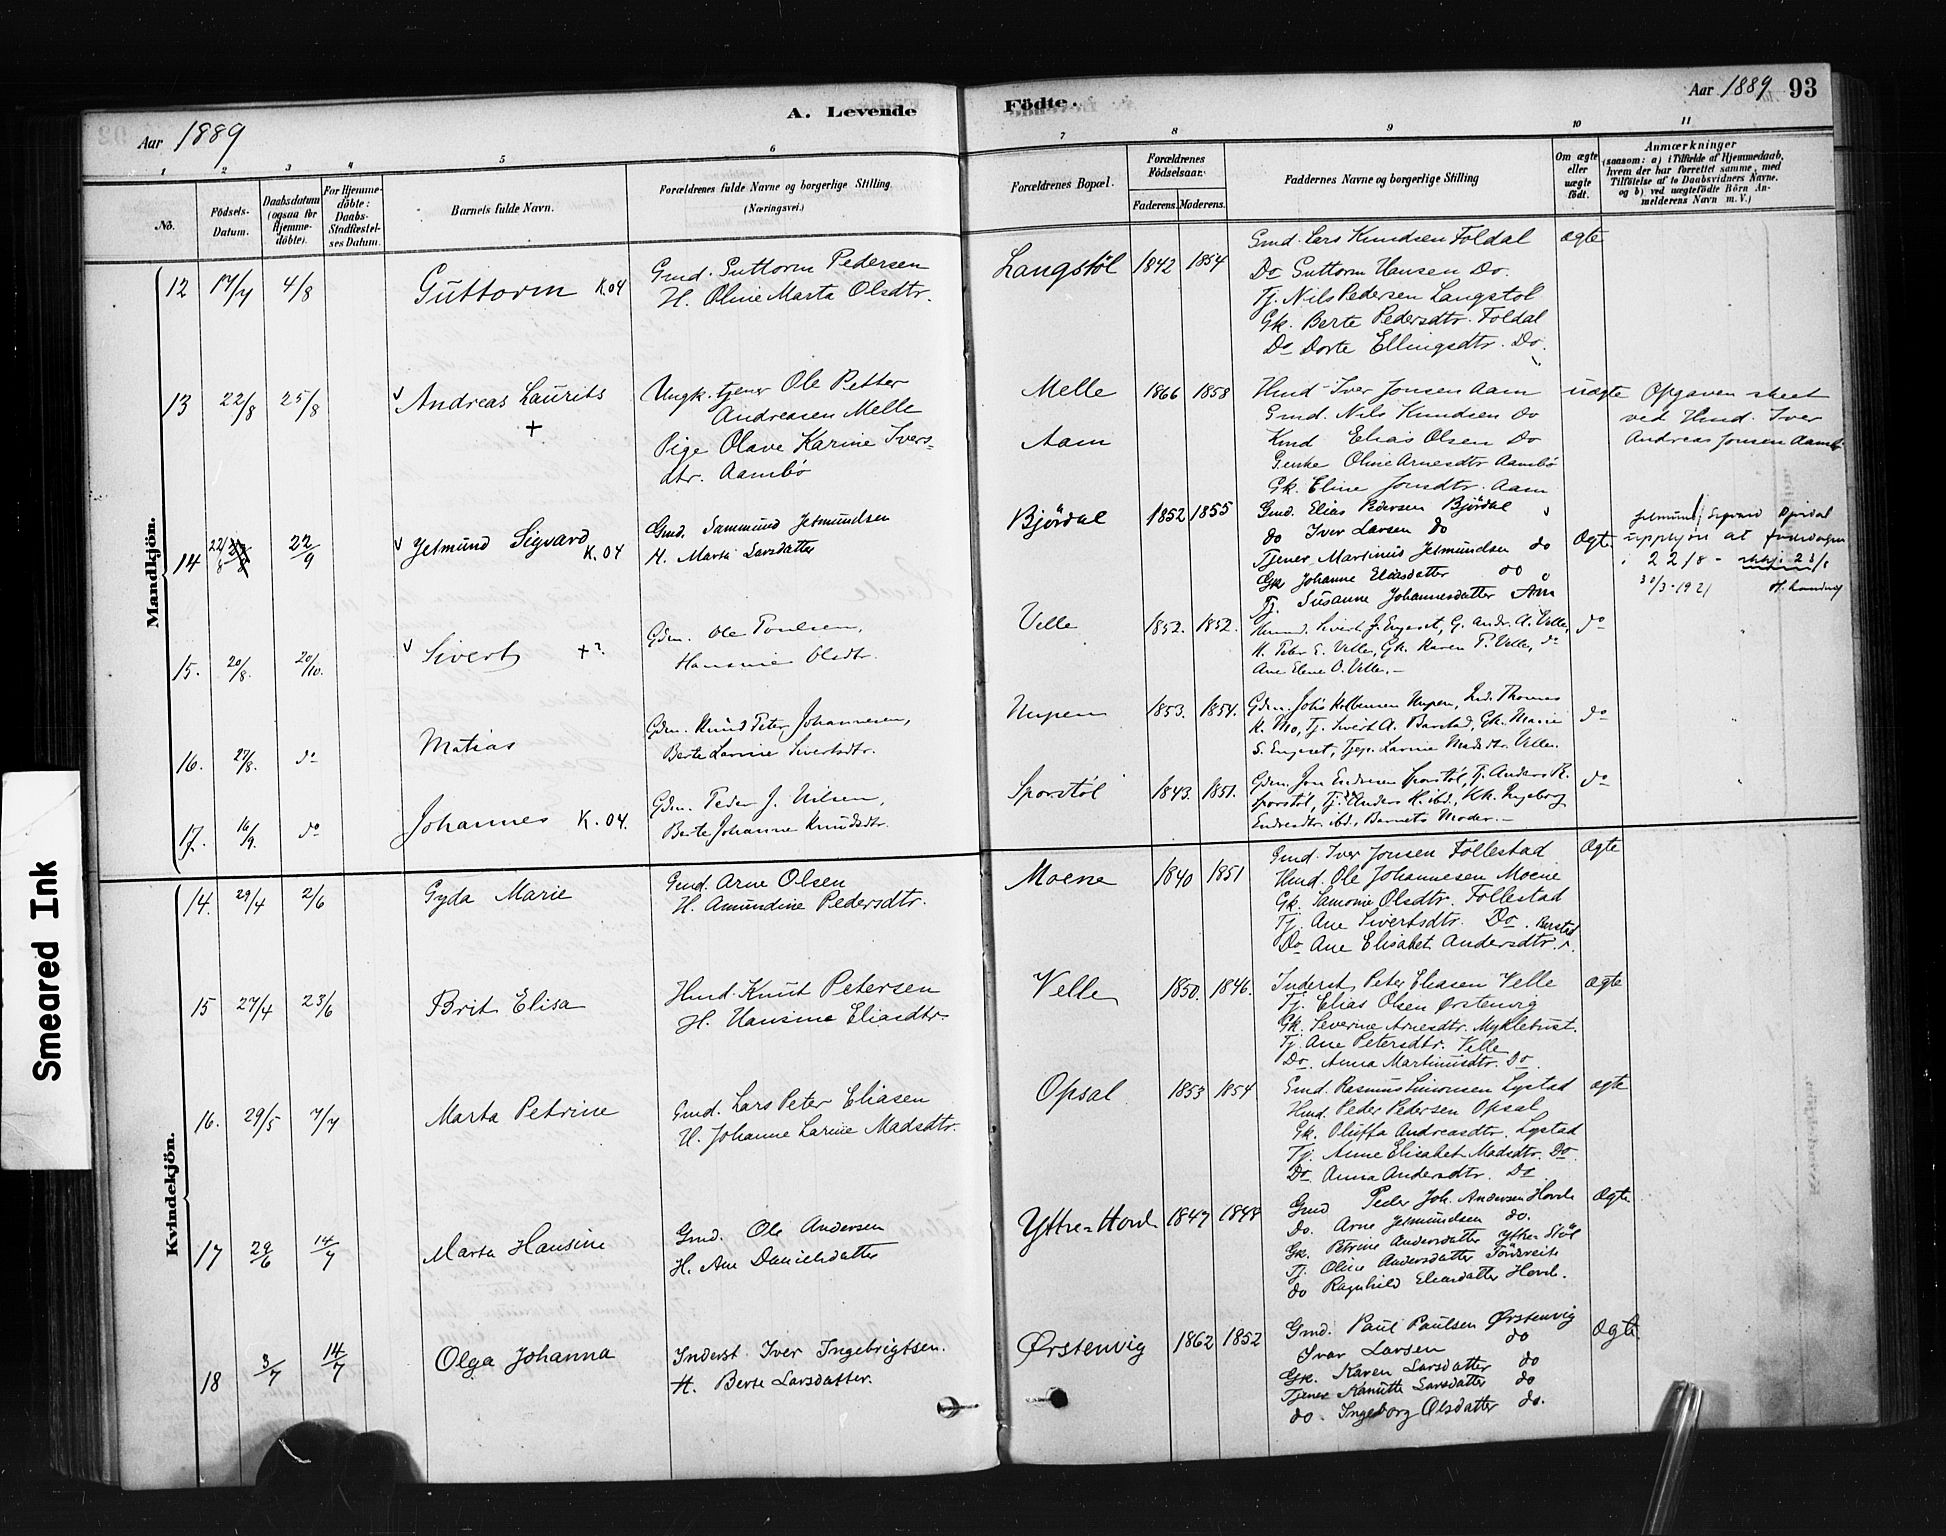 Aar 1889
A. Levende
Födte.
Aar 1889 93
1 2 3 4 5 6 7 8 9 10 11
No.
Födsels-
Datum.
Daabsdatum
(ogsaa for
Hjemme-
döbte).
For Hjemme-
döbte:
Daabs-
Stadfæstel-
ses Datum.
Barnets fulde Navn.
Forældrenes fulde Navne og borgerlige Stilling
(Næringsvei.)
Forældrenes Bopæl.
Forældrenes
Födselsaar.
Faderens. Moderens.
Faddernes Navne og borgerlige Stilling
Om ægte
eller
uægte
födt.
Anmærkninger
(saasom: a) i Tilfælde af Hjemmedaab,
hvem der har forrettet samme, med
Tilföielse af to Daabsvidners Navne.
og b) ved uægtefödte Börn An-
melderens Navn m. V.)
Mandkjön.
12 17/7 4/8 Guttorm K.04
Gmd. Guttorm Pedersen
H. Oline Marta Olsdtr.
Langstøl 1842 1854
Gmd. Lars Knudsen Foldal
Do Guttorm Hansen Do.
Tj. Nils Pedersen Langstøl
Gk. Berte Pedersdtr. Foldal
Do Dorte Ellingsdtr. Do.
ægte
13 22/8 25/8 Andreas Laurits +
Ungk. tjener Ole Petter
Andreasen Melle
Pige Olave Karine Ivers-
dtr. Aambø
Melle 1866 1858
Aam
Hmd. Iver Jonsen Aam
Gmd. Nils Knudsen do
Kmd Elias Olsen Do
Oline Arnesdtr Aambø
Gk. Eline Jonsdtr. Aam
uægte
Opgaven skeet
ved Hmd. Iver
Andreas Jonsen Aambø
14 22/8 22/9 Jetmund Sigvard K.04
Gmd. Sammund Jetmundsen
H. Marte Larsdatter
Bjørdal 1852 1855
Gmd. Elias Pedersen Bjørdal
do Iver Larsen do
Tjener Martinus Jetmundsen do
Gk Johanne Eliasdatter do
Tj. Susanne Johannesdatter Am
Ægte
Jetmund Sigvard Bjørdal
at fødedagen
22/8 - ikkje 23/8
30/3-1921
15. 20/8. 20/10. Sivert +?
Gdm. Ole Poulsen,
Hansine Olsdtr.
Velle 1852. 1852.
Sivert J. Engeset, G. Andr. A. Velle,
K. Peter E. Velle, Gk. Karen P. Velle, do
Ane Elene O. Velle.-
do
16. 27/8. do Matias
Gdm. Knud Peter Johannesen,
Berte Larine Sivertsdtr.
Nupen 1853. 1854.
Gdm. Johs Kolbensen Nupen, Ind. Thomas
K. Mo, Tj. Sivert A. Barstad, Gk. Marie
S. Engeset, Tjep. Karine Madsdtr. Velle.
do
17. 16/9. do Johannes K.04.
Gdm. Peder J. Nilsen,
Berte Johanne Knudsdtr.
Sporstøl 1843. 1851.
Gdm. Jon Endresen Sporstøl, Tj. Anders R.
Sporstøl, Tj. Anders K. ibd., Kk. Ingeborg
Endresdtr. ibd., Barnets Moder.-
do
Kvindekjön.
14. 29/4 2/6 Gyda Marie
Gmd. Arne Olsen
H. Amundine Pedersdtr.
Moene 1840 1851
Gmd. Iver Jonsen Follestad
Hmd. Ole Johannesen Moene
Gk. Samonie Olsdtr. Follestad
Tj. Ane Sivertsdtr. Do.
Do Ane Elisabet Andersdtr.
Ægte
15 27/4 23/6 Brit Elisa
Hmd. Knut Petersen
H. Hansine Eliasdtr.
Velle 1850. 1846.
Inderst Peter Eliasen Velle
Tj. Elias Olsen Ørstenvig
Gk. Severine Arnesdtr. Myklebust.
Tj. Ane Petersdtr. Velle
Do. Anna Martinusdtr. Do
ægte
16. 29/5 7/7 Marta Petrine
Gmd. Lars Peter Eliasen
H. Johanne Larine Madsdtr.
Opsal 1853 1854
Gmd. Rasmus Simonsen Lystad
Hmd. Peder Pedersen Opsal
Gk. Oluffa Andreasdtr. Lystad
Tj. Anne Elisabet Madsdtr. Do
Do. Anna Andersdtr. Do
ægte
17 29/6 14/7 Marta Hansine
Gmd. Ole Andersen
H. Ane Danielsdatter
Yttre-Hovd. 1847 1848
Gmd Peder Joh. Andersen Hovde
do. Arne Jetmundsen do.
Gk. Petrine Andersdatter Ytter Støl
Tj. Oline Andersdatter
do Ragnhild Eliasdatter Hovd.
Ægte
18 3/7 14/7 Olga Johanna
Inderst. Iver Ingebrigtsen.
H. Berte Larsdatter.
Ørstenvig 1862 1852
Gmd. Paul Paulsen Ørstenvig
Ivar Larsen do
Gk. Karen Larsdatter do
Tjener Kanutte Larsdatter do
do. Ingeborg Olsdatter do.
Ægte
Smeared Ink